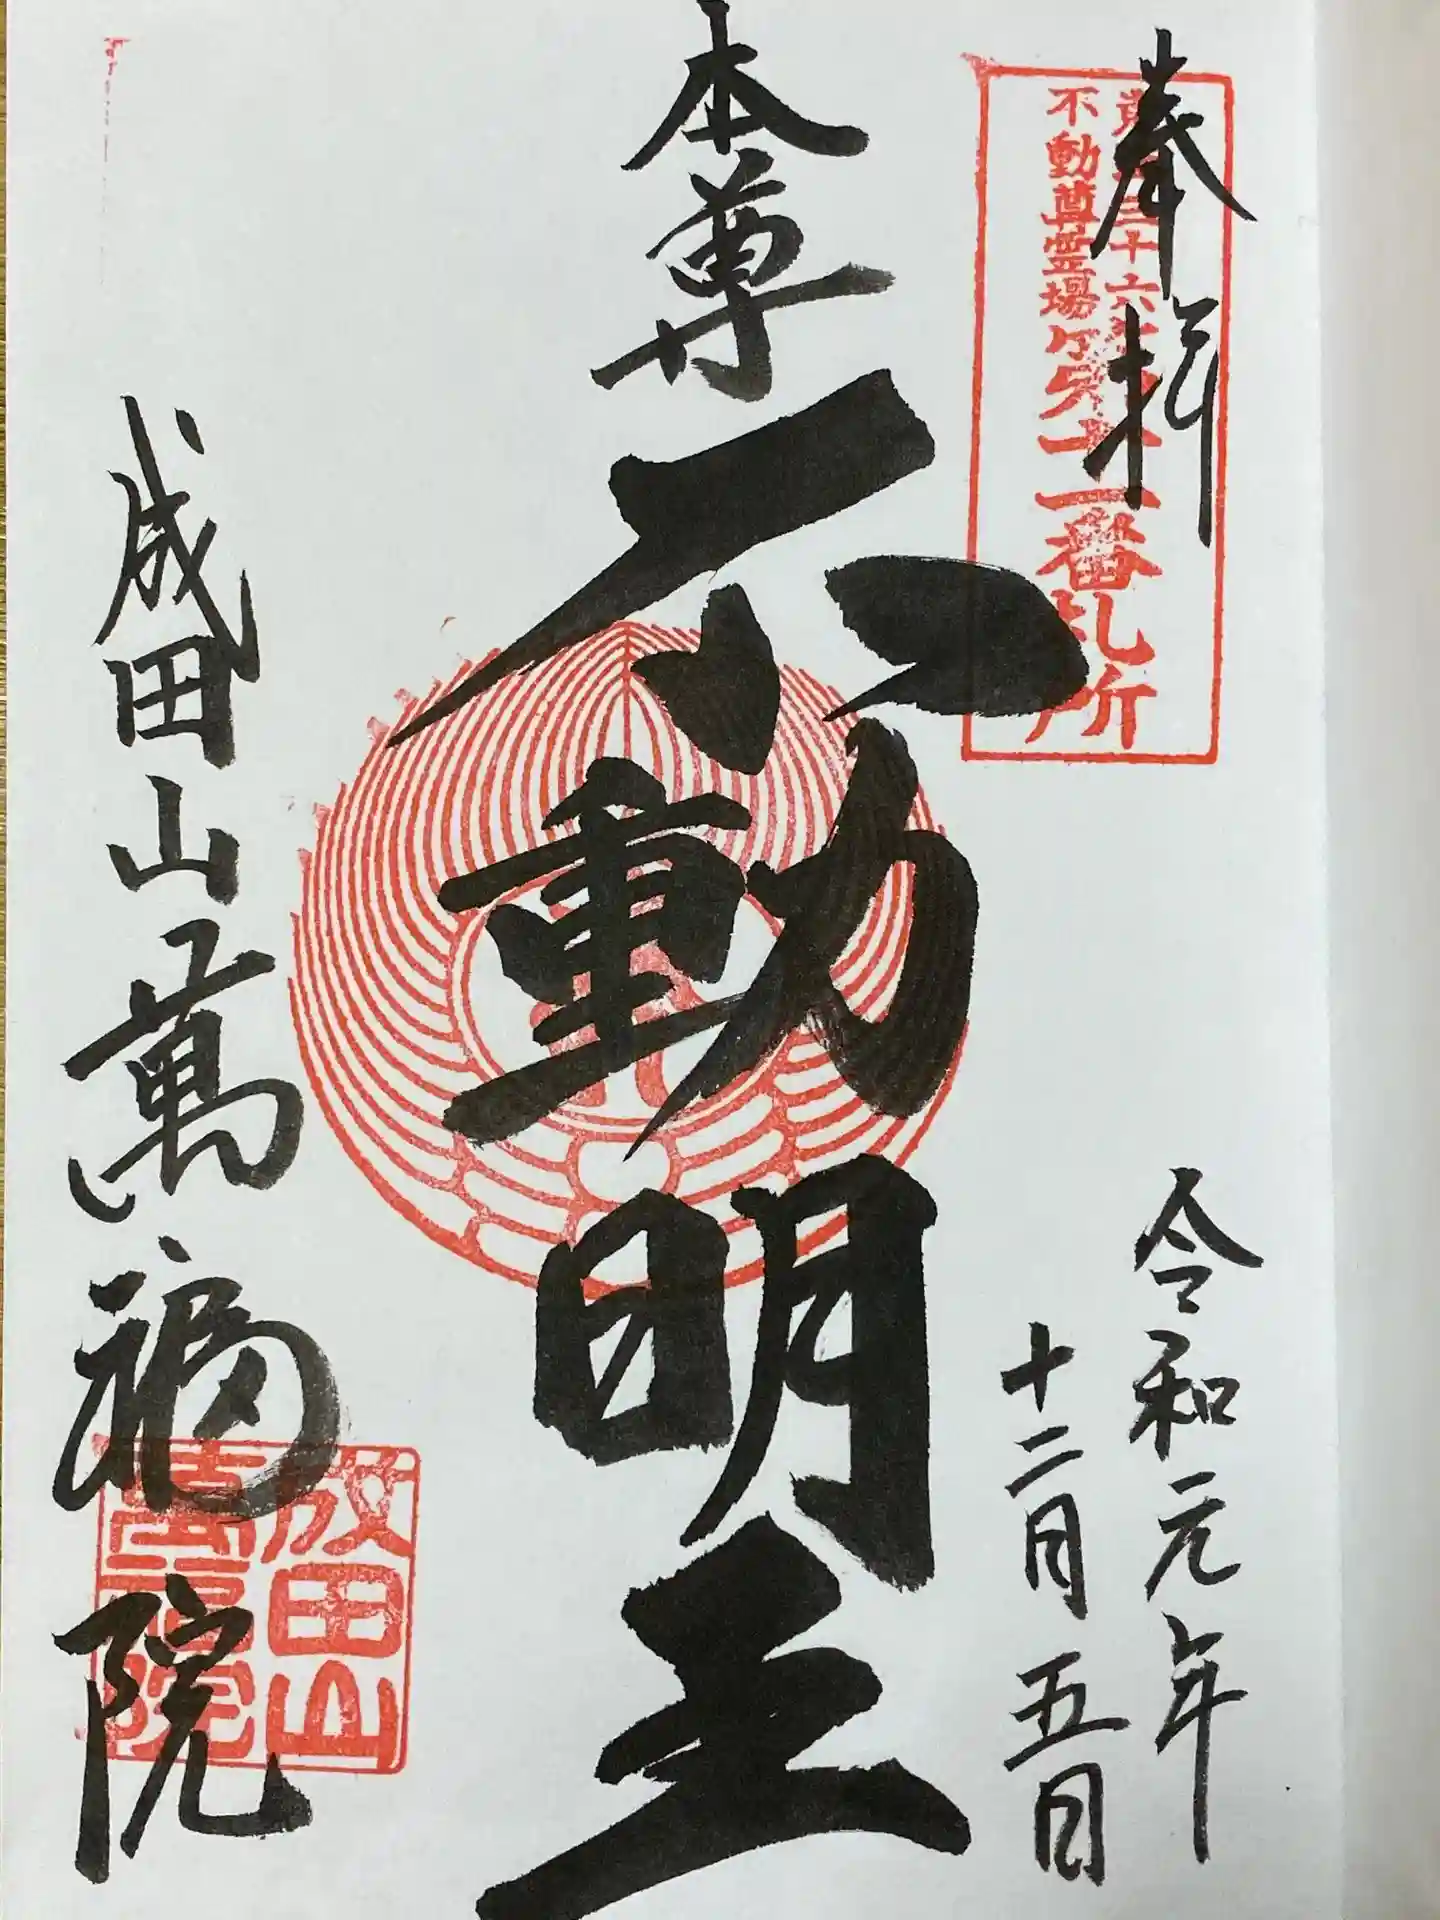 奉拝
三十六
不動尊霊場
第十二番札所
令和元年
十二月五日
本尊
不動明王
成田山萬福院
成田山
萬福院